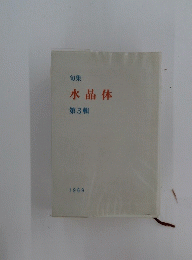 句集
水晶体
第3輯